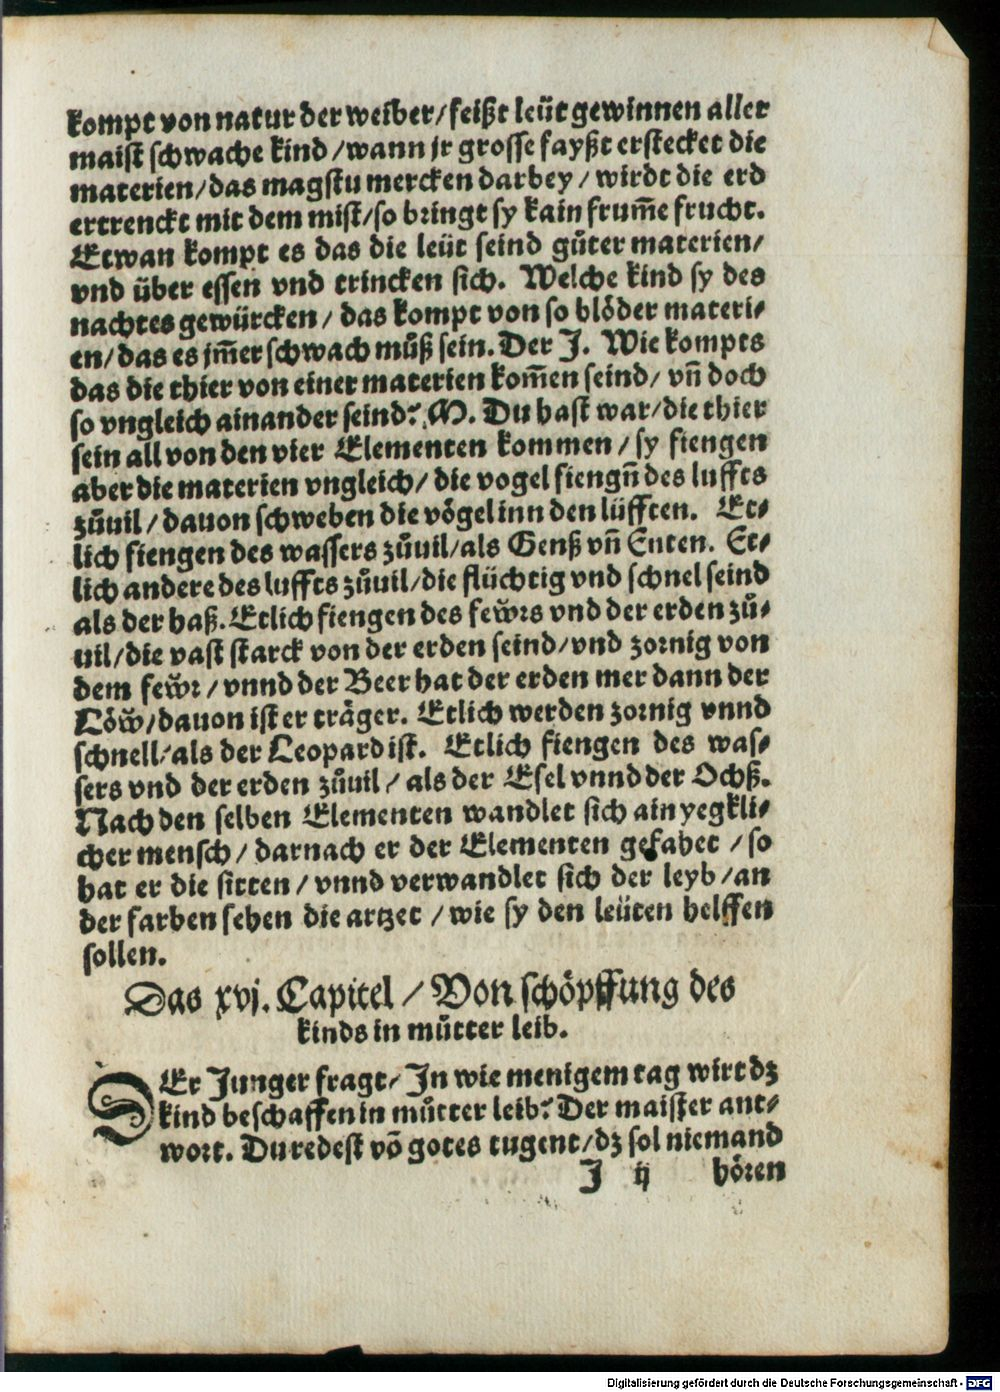 kompt von natur der weiber/feißt leüt gewinnen aller
maist schwache kind/wann jr grosse fayßt erstecket die
materien/das magstu mercken darbey/wirdt die erd
ertrenckt mit dem mist/so bringt sy kain frum̃e frucht.
Etwan kompt es das die leüt seind gůter materien/
vnd über essen vnd trincken sich. Welche kind sy des
nachtes gewürcken/das kompt von so blöder materi-
en/das es jm̃er schwach můß sein. Der J. Wie kompts
das die thier von einer materien kom̃en seind/vñ doch
so vngleich ainander seind? M. Du hast war/die thier
sein all von den vier Elementen kommen/sy fiengen
aber die materien vngleich/die vogel fiengñ des luffts
zůuil/dauon schweben die vögel inn den lüfften. Et-
lich fiengen des wassers zůuil/als Genß vñ Enten. Et-
lich andere des luffts zůuil/die flüchtig vnd schnel seind
als der haß. Etlich fiengen des fewͤrs vnd der erden zů-
uil/die vast starck von der erden seind/vnd zornig von
dem fewͤr/vnnd der Beer hat der erden mer dann der
Löw̃/dauon ist er träger. Etlich werden zornig vnnd
schnell/als der Leopard ist. Etlich fiengen des was-
sers vnd der erden zůuil/als der Esel vnnd der Ochß.
Nach den selben Elementen wandlet sich ain yegkli-
cher mensch/darnach er der Elementen gefahet/so
hat er die sitten/vnnd verwandlet sich der leyb/an
der farben sehen die artzet/wie sy den leüten helffen
sollen.
Das xvj. Capitel/Von schöpffung des
kinds in můtter leib.
DEr Junger fragt/In wie menigem tag wirt dz
kind beschaffen in můtter leib? Der maister ant-
wort. Du redest võ gotes tugent/dz sol niemand
J ij hören
Digitalisierung gefördert durch die Deutsche Forschungsgemeinschaft - DFG